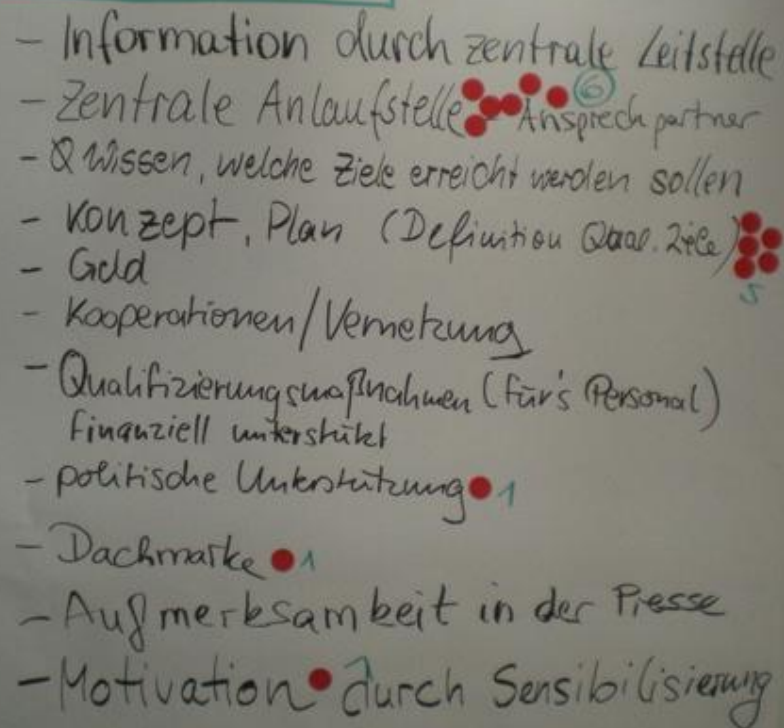 - Information durch zentrale Leitstelle
- Zentrale Anlaufstelle 6 Ansprechpartner
- Q Wissen, welche Ziele erreicht werden sollen
- Konzept, Plan (Definition Qual. Ziele) 5
- Geld
- Kooperationen/Vernetzung
- Qualifizierungsmaßnahmen (für's Personal)
finanziell unterstützt
- politische Unterstützung 1
- Dachmarke 1
- Aufmerksamkeit in der Presse
- Motivation 1 durch Sensibilisierung